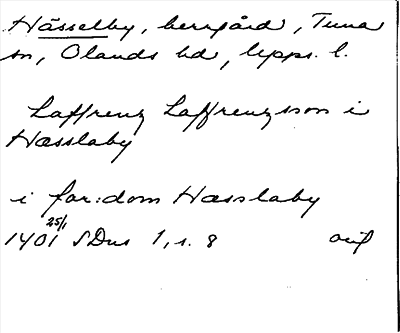 Hässelby, herrgård, Tuna
sn, Olands hd, Upps. l.
Laffrenz Laffrenzsson i
Hæsslaby
i for:dom Hæsslaby
1401 25/1 SDns 1, s. 8 orig